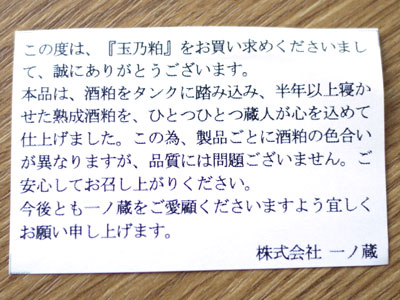 この度は、『玉乃粕』をお買い求めくださいまし
て、誠にありがとうございます。
本品は、酒粕をタンクに踏み込み、半年以上寝か
せた熟成酒粕を、ひとつひとつ蔵人が心を込めて
仕上げました。この為、製品ごとに酒粕の色合い
が異なりますが、品質には問題ございません。ご
安心してお召し上がりください。
今後とも一ノ蔵をご愛顧くださいますよう宜しく
お願い申し上げます。
株式会社 一ノ蔵